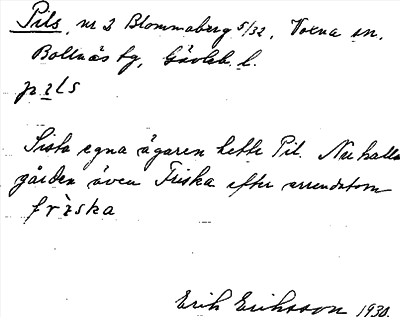 Pils, nr 2 Blommaberg 5/32, Voxna sn.
Bollnäs tg, Gävleb. l.
pils
Sista egna ägaren hette Pil. Nu kallas
gården även Friska efter arrendatorn
friska
Erik Eriksson 1930.